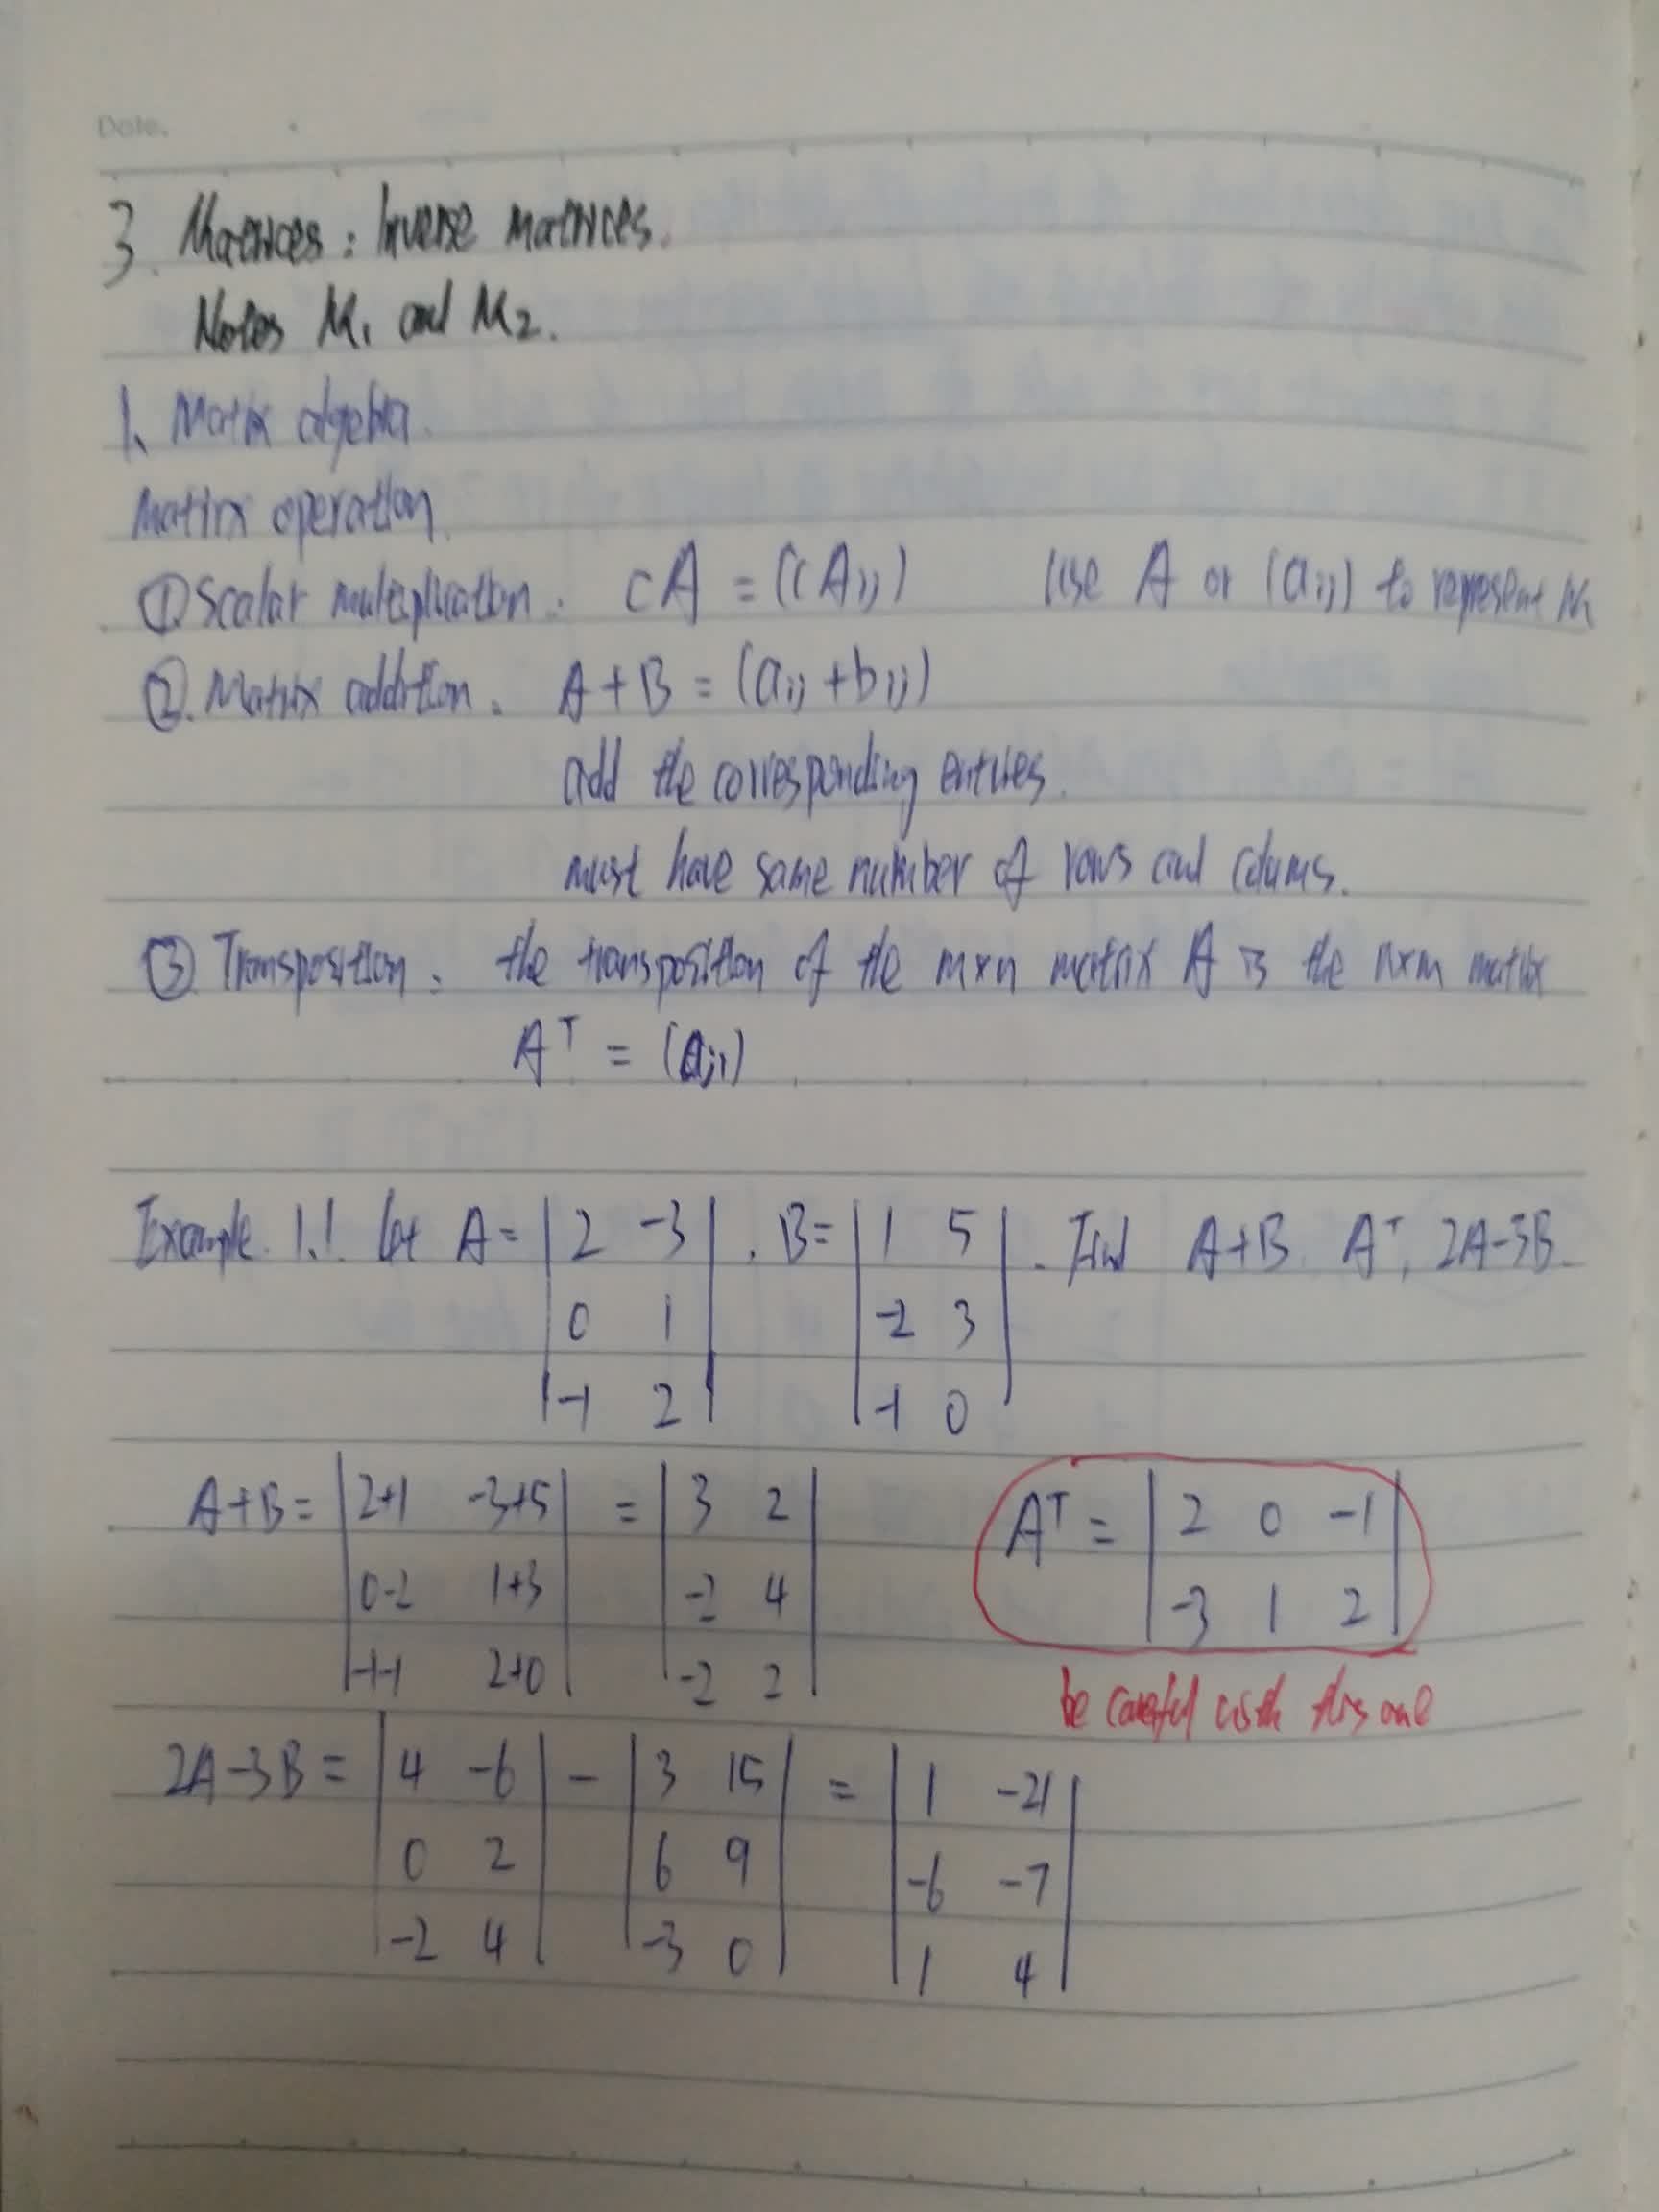 Date.
3. Matrices: Inverse matrices.
Notes M₁ and M₂.
1. Matrix algebra.
Matrix operation.
① Scalar multiplication. cA = (cAij) Use A or (aij) to represent M
② Matrix addition. A+B = (aij + bij)
add the corresponding entries.
must have same number of rows and colums.
③ Transposition. the transposition of the m×n matrix A is the n×m matrix
Aᵀ = (aji)
Example. 1.1 let A= |2 -3| . B= |1 5| . Find A+B. Aᵀ, 2A-3B.
|0 1| |-2 3|
|-1 2| |-1 0|
A+B= |2+1 -3+5| = |3 2| Aᵀ = |2 0 -1|
|0-2 1+3| |-2 4| |-3 1 2|
|-1-1 2+0| |-2 2|
be careful with this one
2A-3B= |4 -6| - |3 15| = |1 -21|
|0 2| |6 9| |-6 -7|
|-2 4| |-3 0| |1 4|